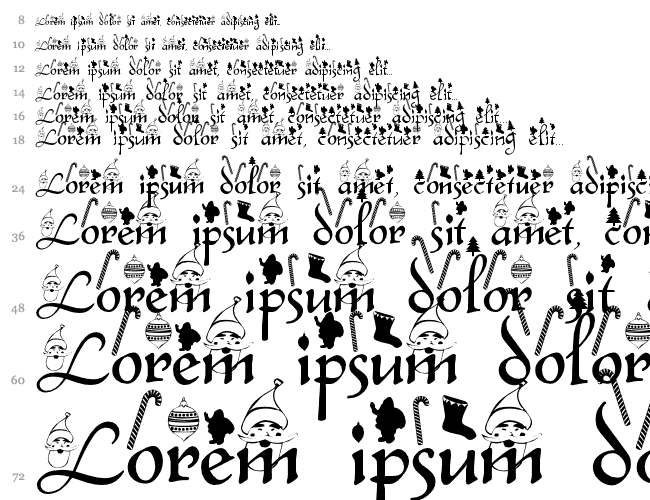 8 Lorem ipsum dolor sit amet, consectetuer adipiscing elit...
10 Lorem ipsum dolor sit amet, consectetuer adipiscing elit...
12 Lorem ipsum dolor sit amet, consectetuer adipiscing elit...
14 Lorem ipsum dolor sit amet, consectetuer adipiscing elit...
16 Lorem ipsum dolor sit amet, consectetuer adipiscing elit...
18 Lorem ipsum dolor sit amet, consectetuer adipiscing elit...
24 Lorem ipsum dolor sit amet, consectetuer adipisci
36 Lorem ipsum dolor sit amet, con
48 Lorem ipsum dolor sit
60 Lorem ipsum dolor
72 Lorem ipsum do